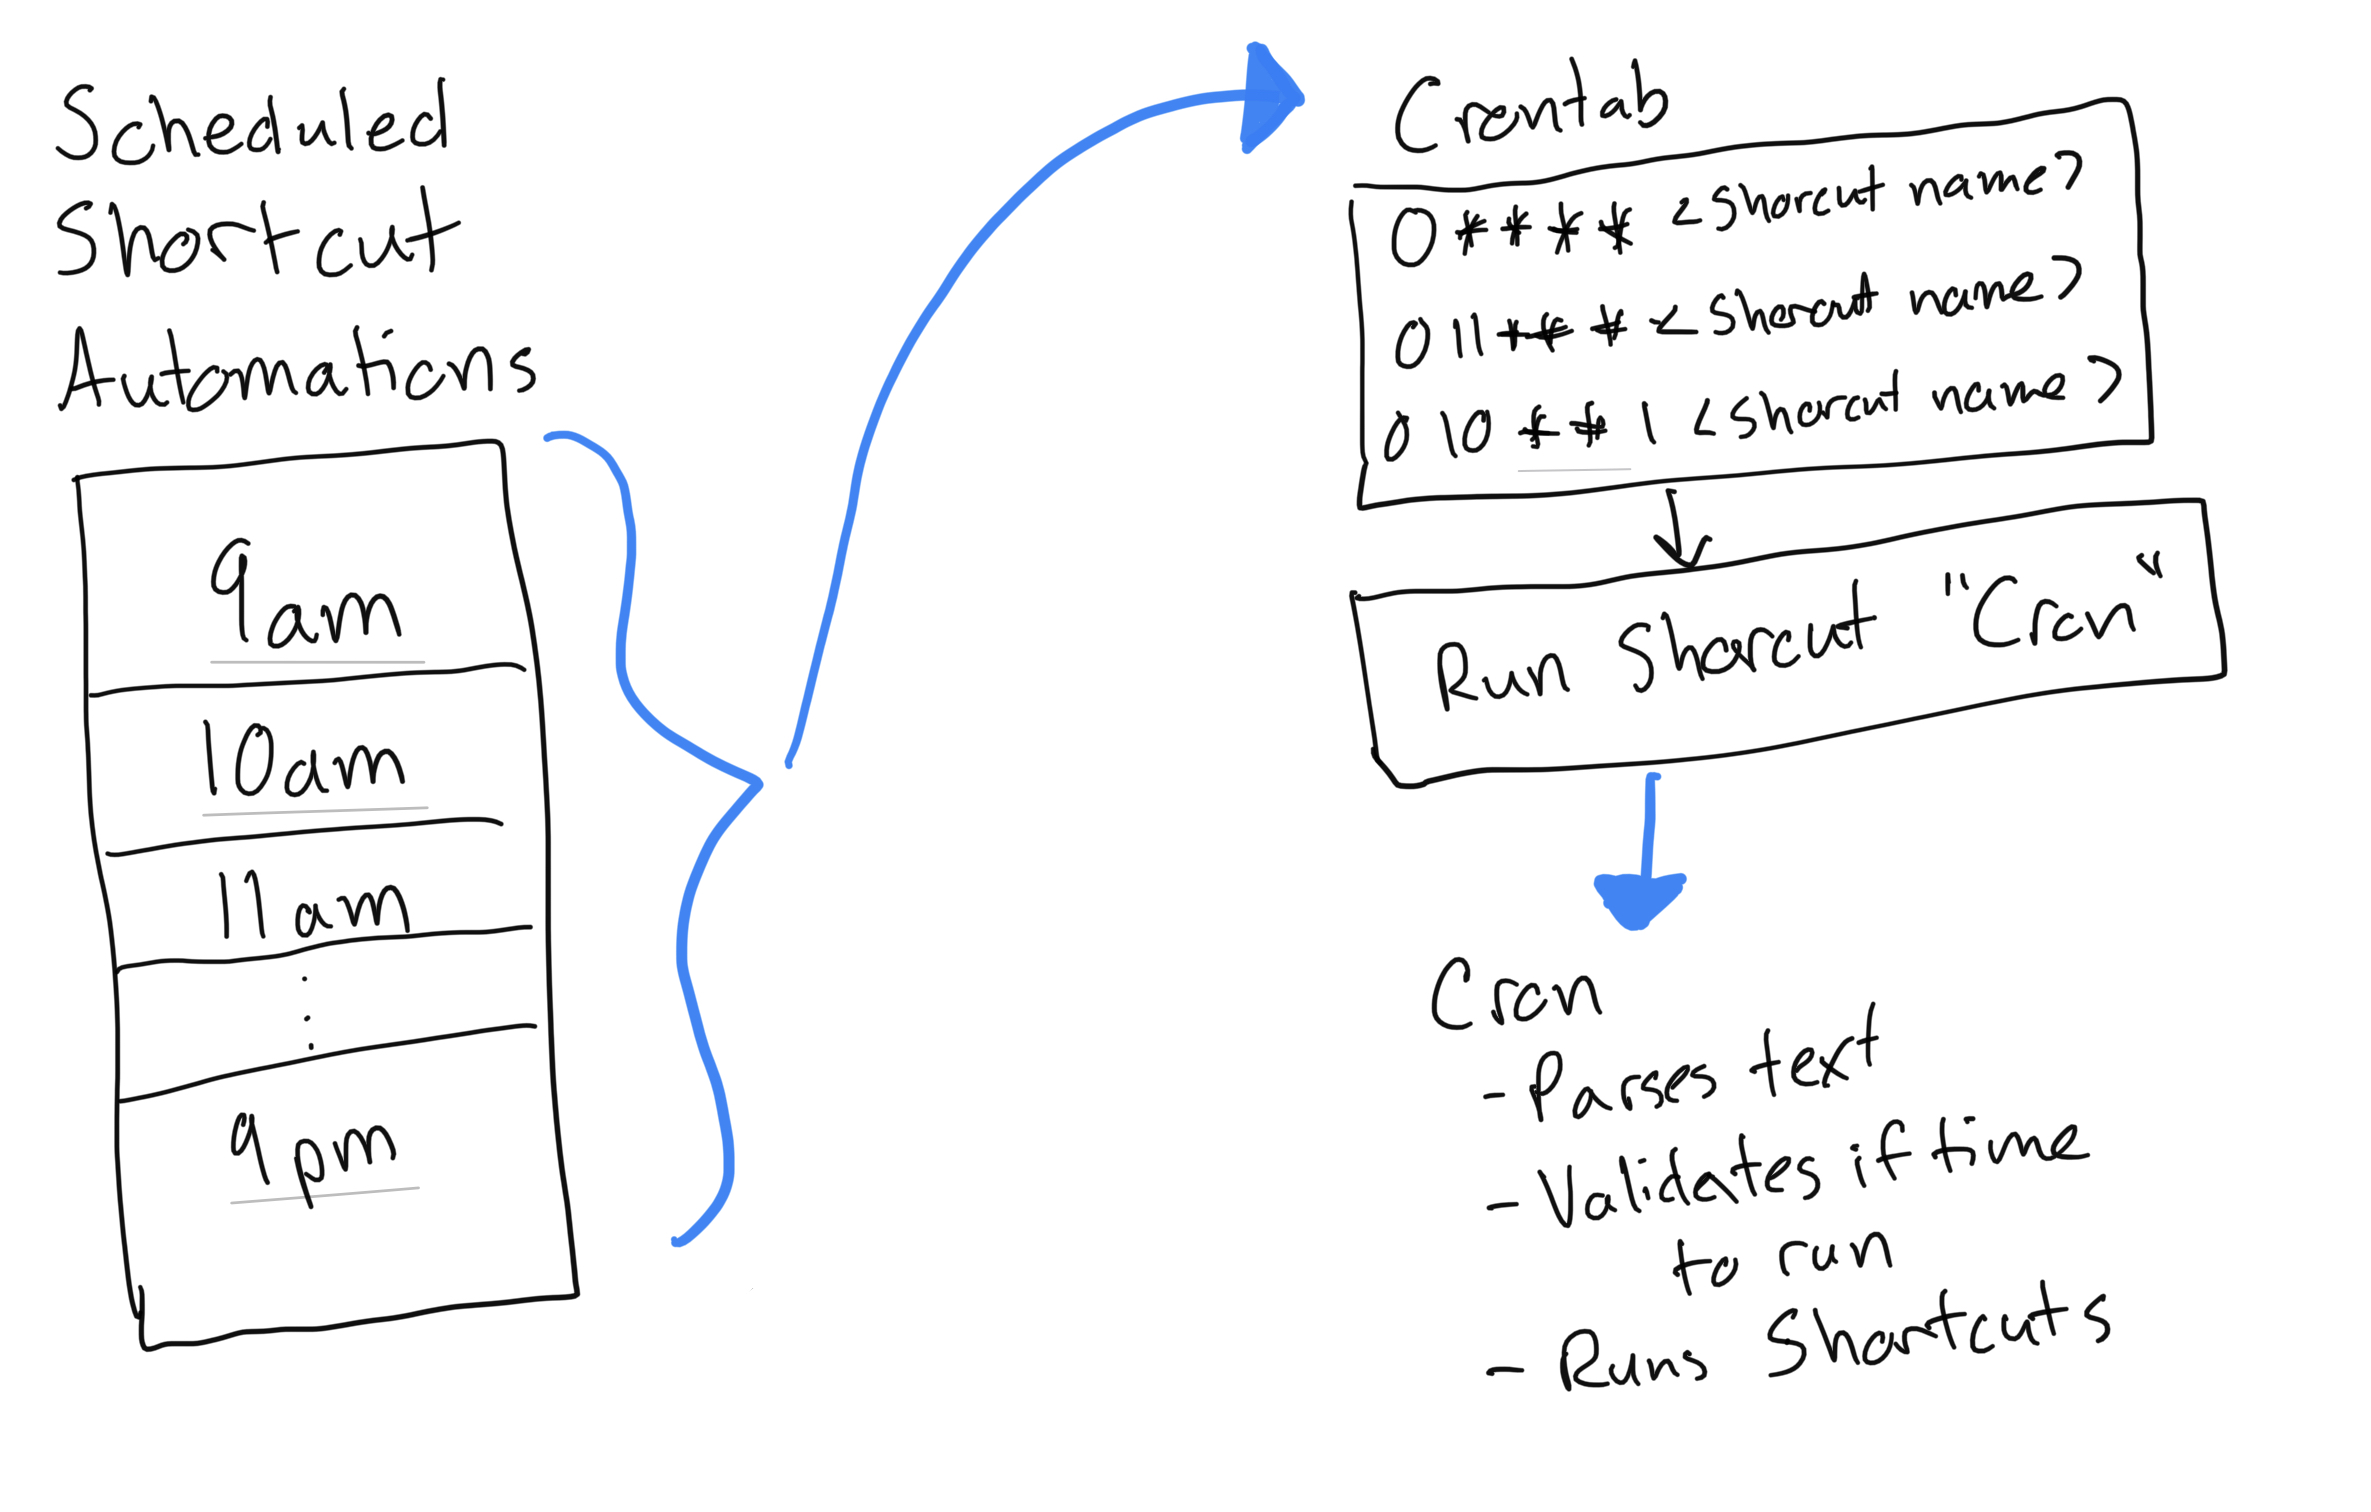 Scheduled
Shortcut
Automations
9am
10am
11am
9pm
Crontab
0 * * * * <shorcut name>
0 11 * * * <shorcut name>
0 10 * * 1 <shorcut name>
Run Shorcut "Cron"
Cron
- Parses text
- Validates if time
to run
- Runs Shortcuts